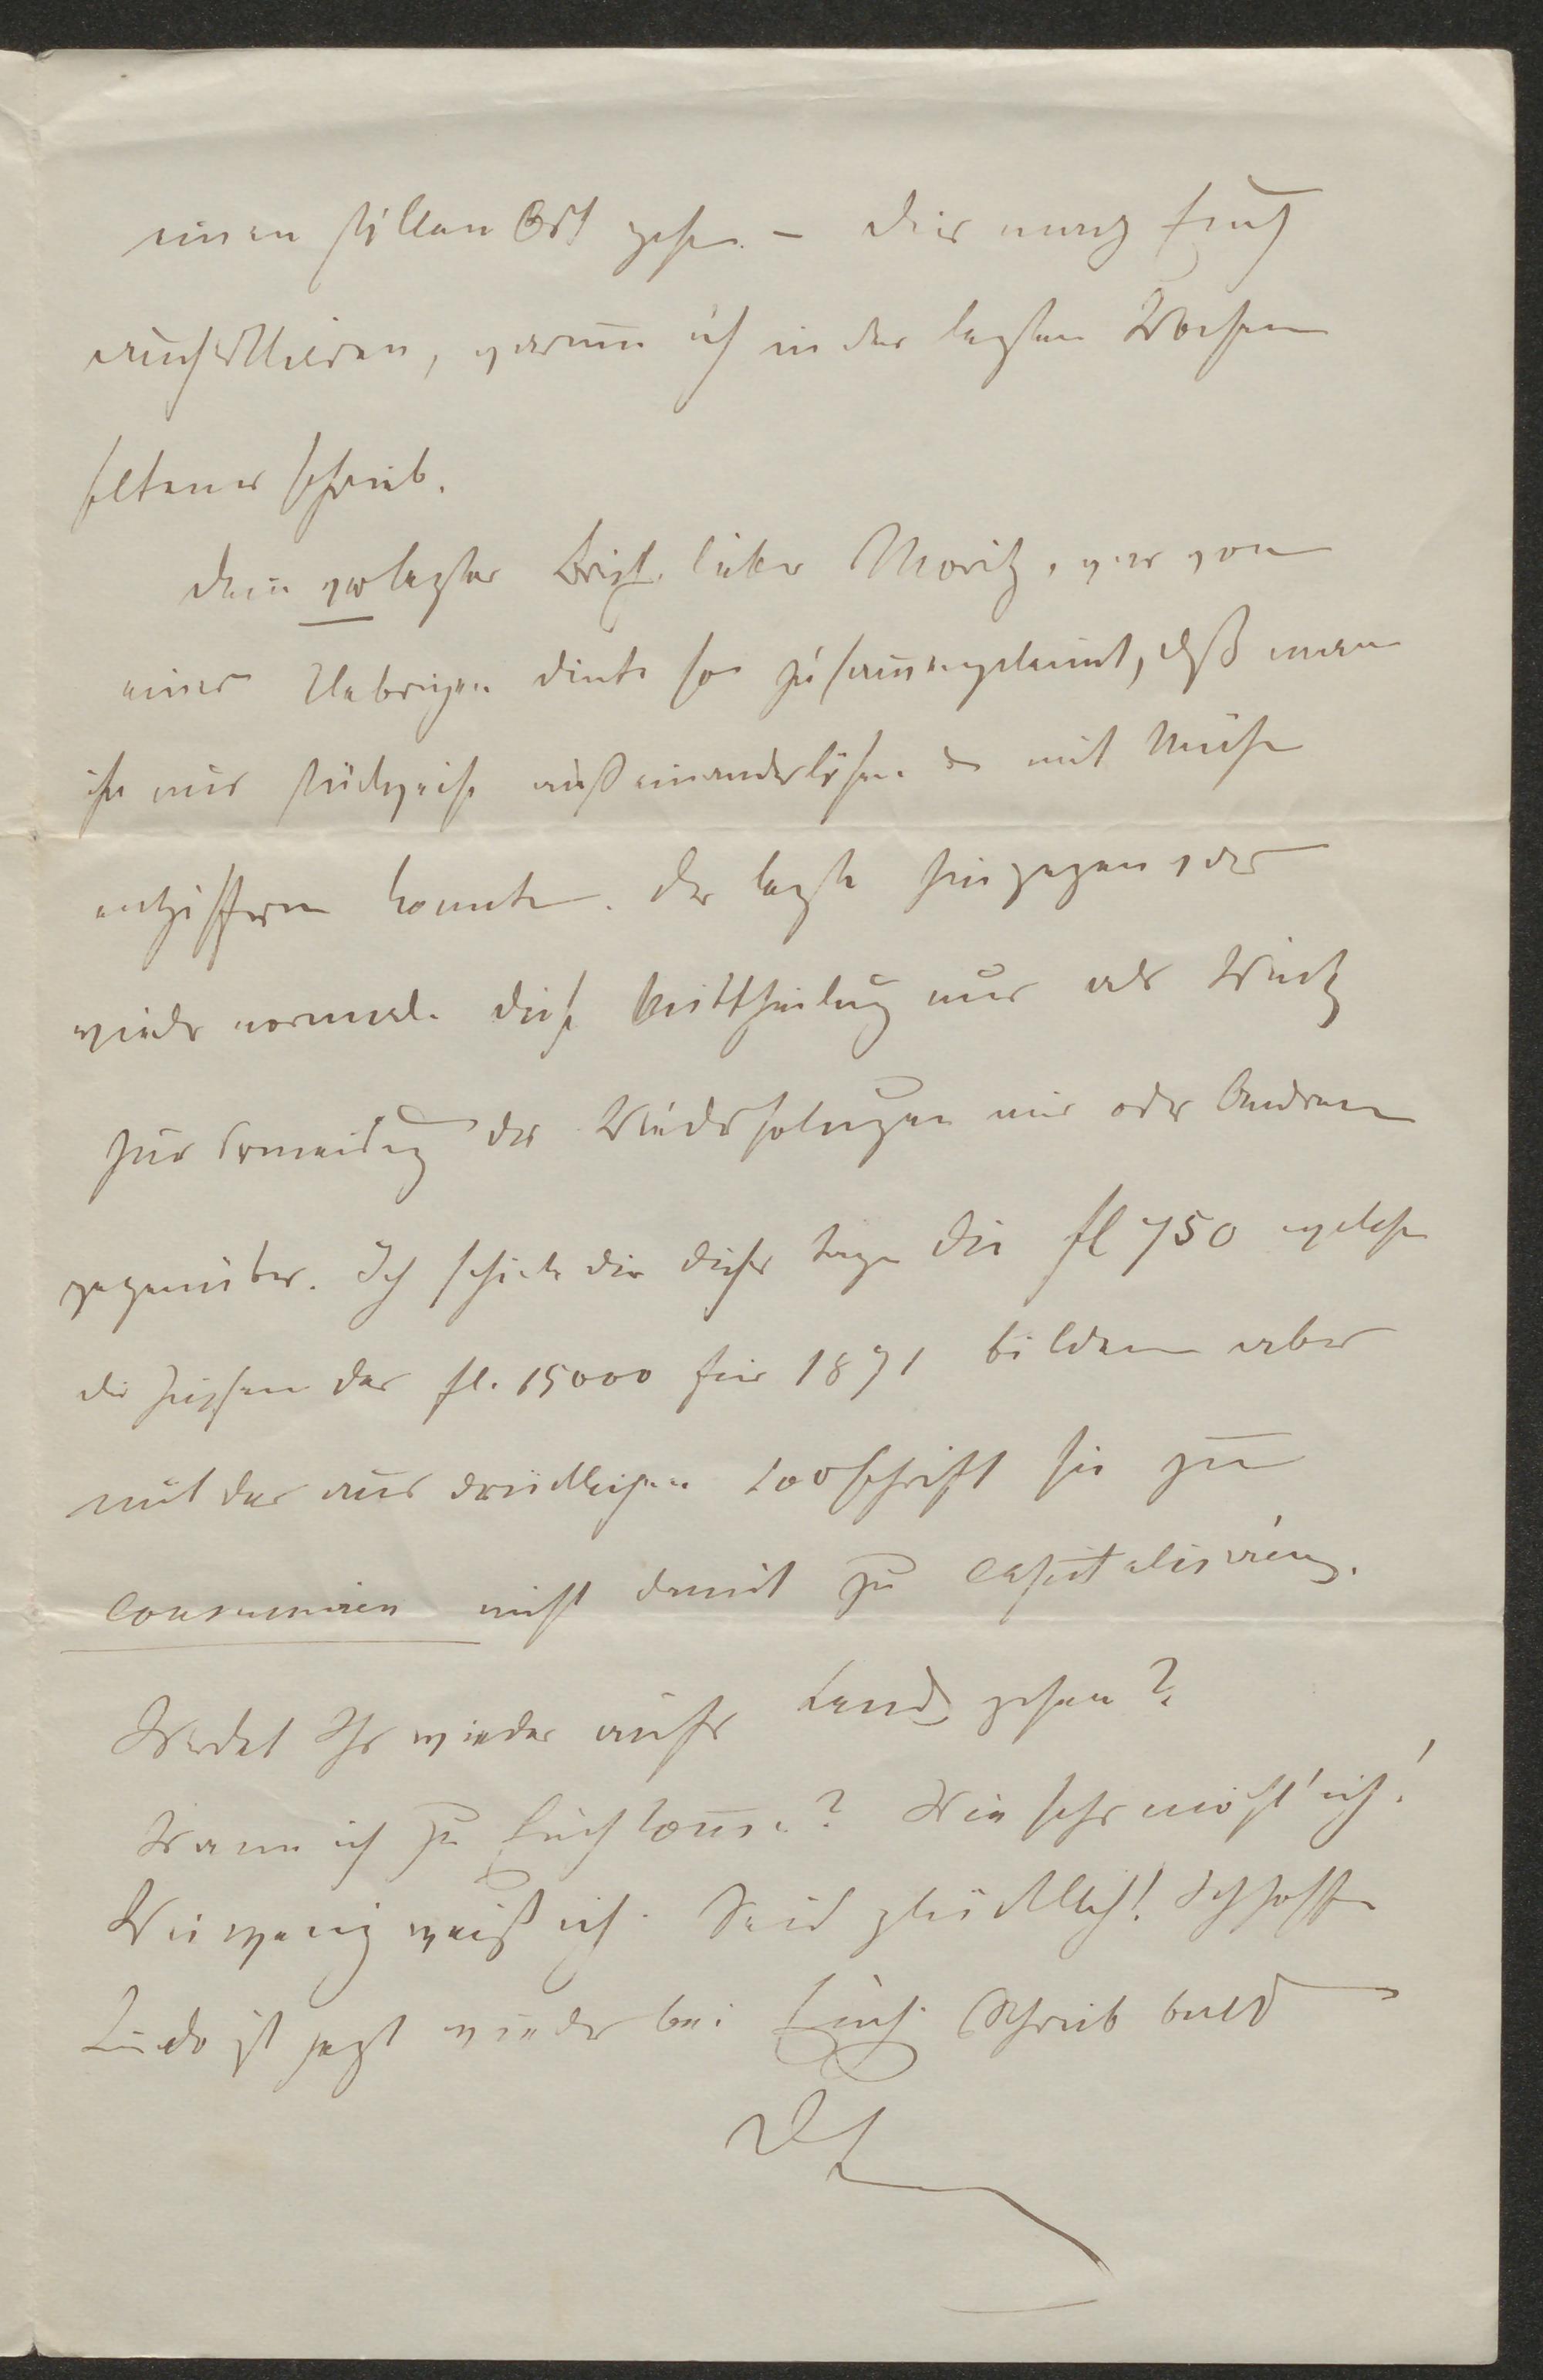 einen stillen Ort gehen. – dies mag Euch
auch erklären, warum ich in der lezten Wochen
seltener schrieb.
Dein vorlezter Brief, lieber Moritz, war von
einer klebrigen Dinte so zusammengeleimt, daß man
ihn nur stückweise auseinanderlösen & mit Mühe
entziffern konnte. Der lezte hingegen war
wieder normal. Diese Mittheilung nur als Wink
zur Vermeidung der Wiederholungen mir oder Anderen
gegenüber. Ich schicke dir dieser Tage die fl 750 welche
die Zinsen der fl. 15000 für 1871 bilden aber
mit der ausdrücklichen Vorschrift sie zu
consumiren nicht damit zu capitalisiren.
Werdet Ihr wieder aufs Land gehen?
Wann ich zu Euch komme? Wie sehr möcht' ich!
Wie wenig weiß ich. Seid glücklich! Ich hoffe
ist jezt wieder bei Euch. Schreib bald